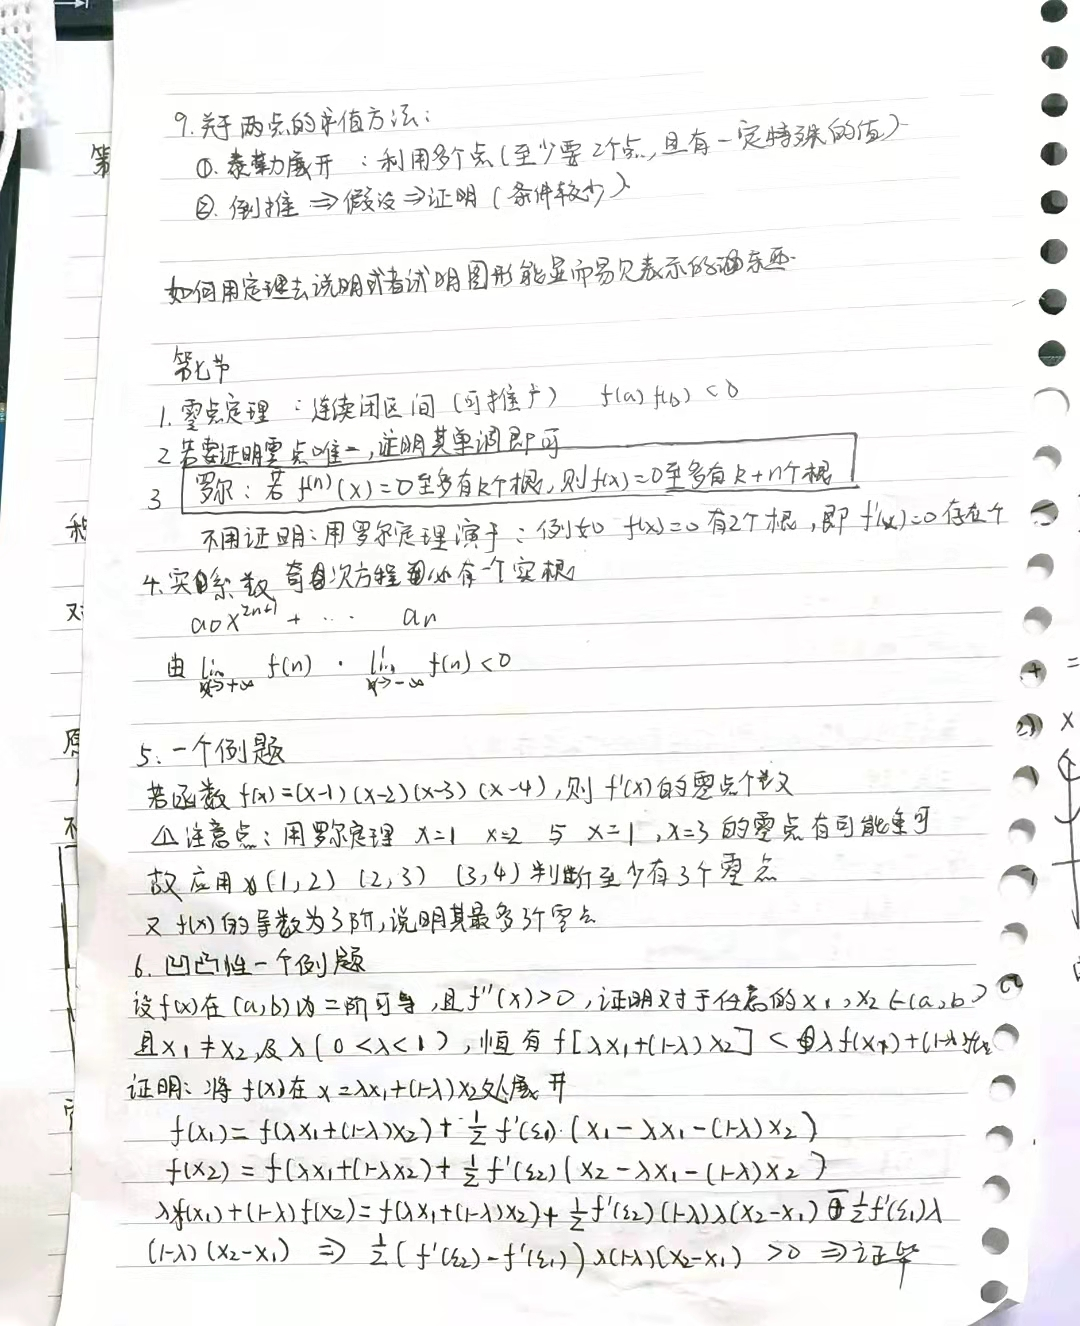 9.关于两点的中值方法:
①.泰勒展开 :利用多个点(至少要2个点,且有一定特殊的值)
②.倒推 ⇒假设⇒证明(条件较少)
如何用定理去说明或者试明图形能显而易见表示的
第七节
1.零点定理 :连续闭区间(可推广) f(a)f(b)<0
2若要证明零点唯一,证明其单调即可
3 罗尔:若f⁽ⁿ⁾(x)=0至多有k个根,则f(x)=0至多有k+n个根
不用证明:用罗尔定理演于:例如 f(x)=0有2个根,即f'(x)=0存在个
4.实系数 奇次方程必有一个实根
a0x²ⁿ⁺¹+ ... an
由 lim x→+∞ f(n) · lim x→-∞ f(n)<0
5.一个例题
若函数f(x)=(x-1)(x-2)(x-3)(x-4),则f'(x)的零点个数
⚠注意点:用罗尔定理 x=1 x=2 与 x=1,x=3的零点有可能重可
故应用(1,2) (2,3) (3,4)判断至少有3个零点
又f(x)的导数为3阶,说明其最多3个零点
6.凹凸性一个例题
设f(x)在(a,b)内二阶可导,且f''(x)>0,证明对于任意的x1,x2∈(a,b)
且x1≠x2,及λ(0<λ<1),恒有f[λx1+(1-λ)x2]<λf(x1)+(1-λ)f(x2
证明:将f(x)在x=λx1+(1-λ)x2处展开
f(x1)=f(λx1+(1-λ)x2)+½f'(ξ1)·(x1-λx1-(1-λ)x2)
f(x2)=f(λx1+(1-λx2)+½f'(ξ2)(x2-λx1-(1-λ)x2)
λf(x1)+(1-λ)f(x2)=f(λx1+(1-λ)x2)+½f'(ξ2)(1-λ)λ(x2-x1)-½f'(ξ1)λ
(1-λ)(x2-x1) ⇒ ½(f'(ξ2)-f'(ξ1))λ(1-λ)(x2-x1) >0 ⇒证毕